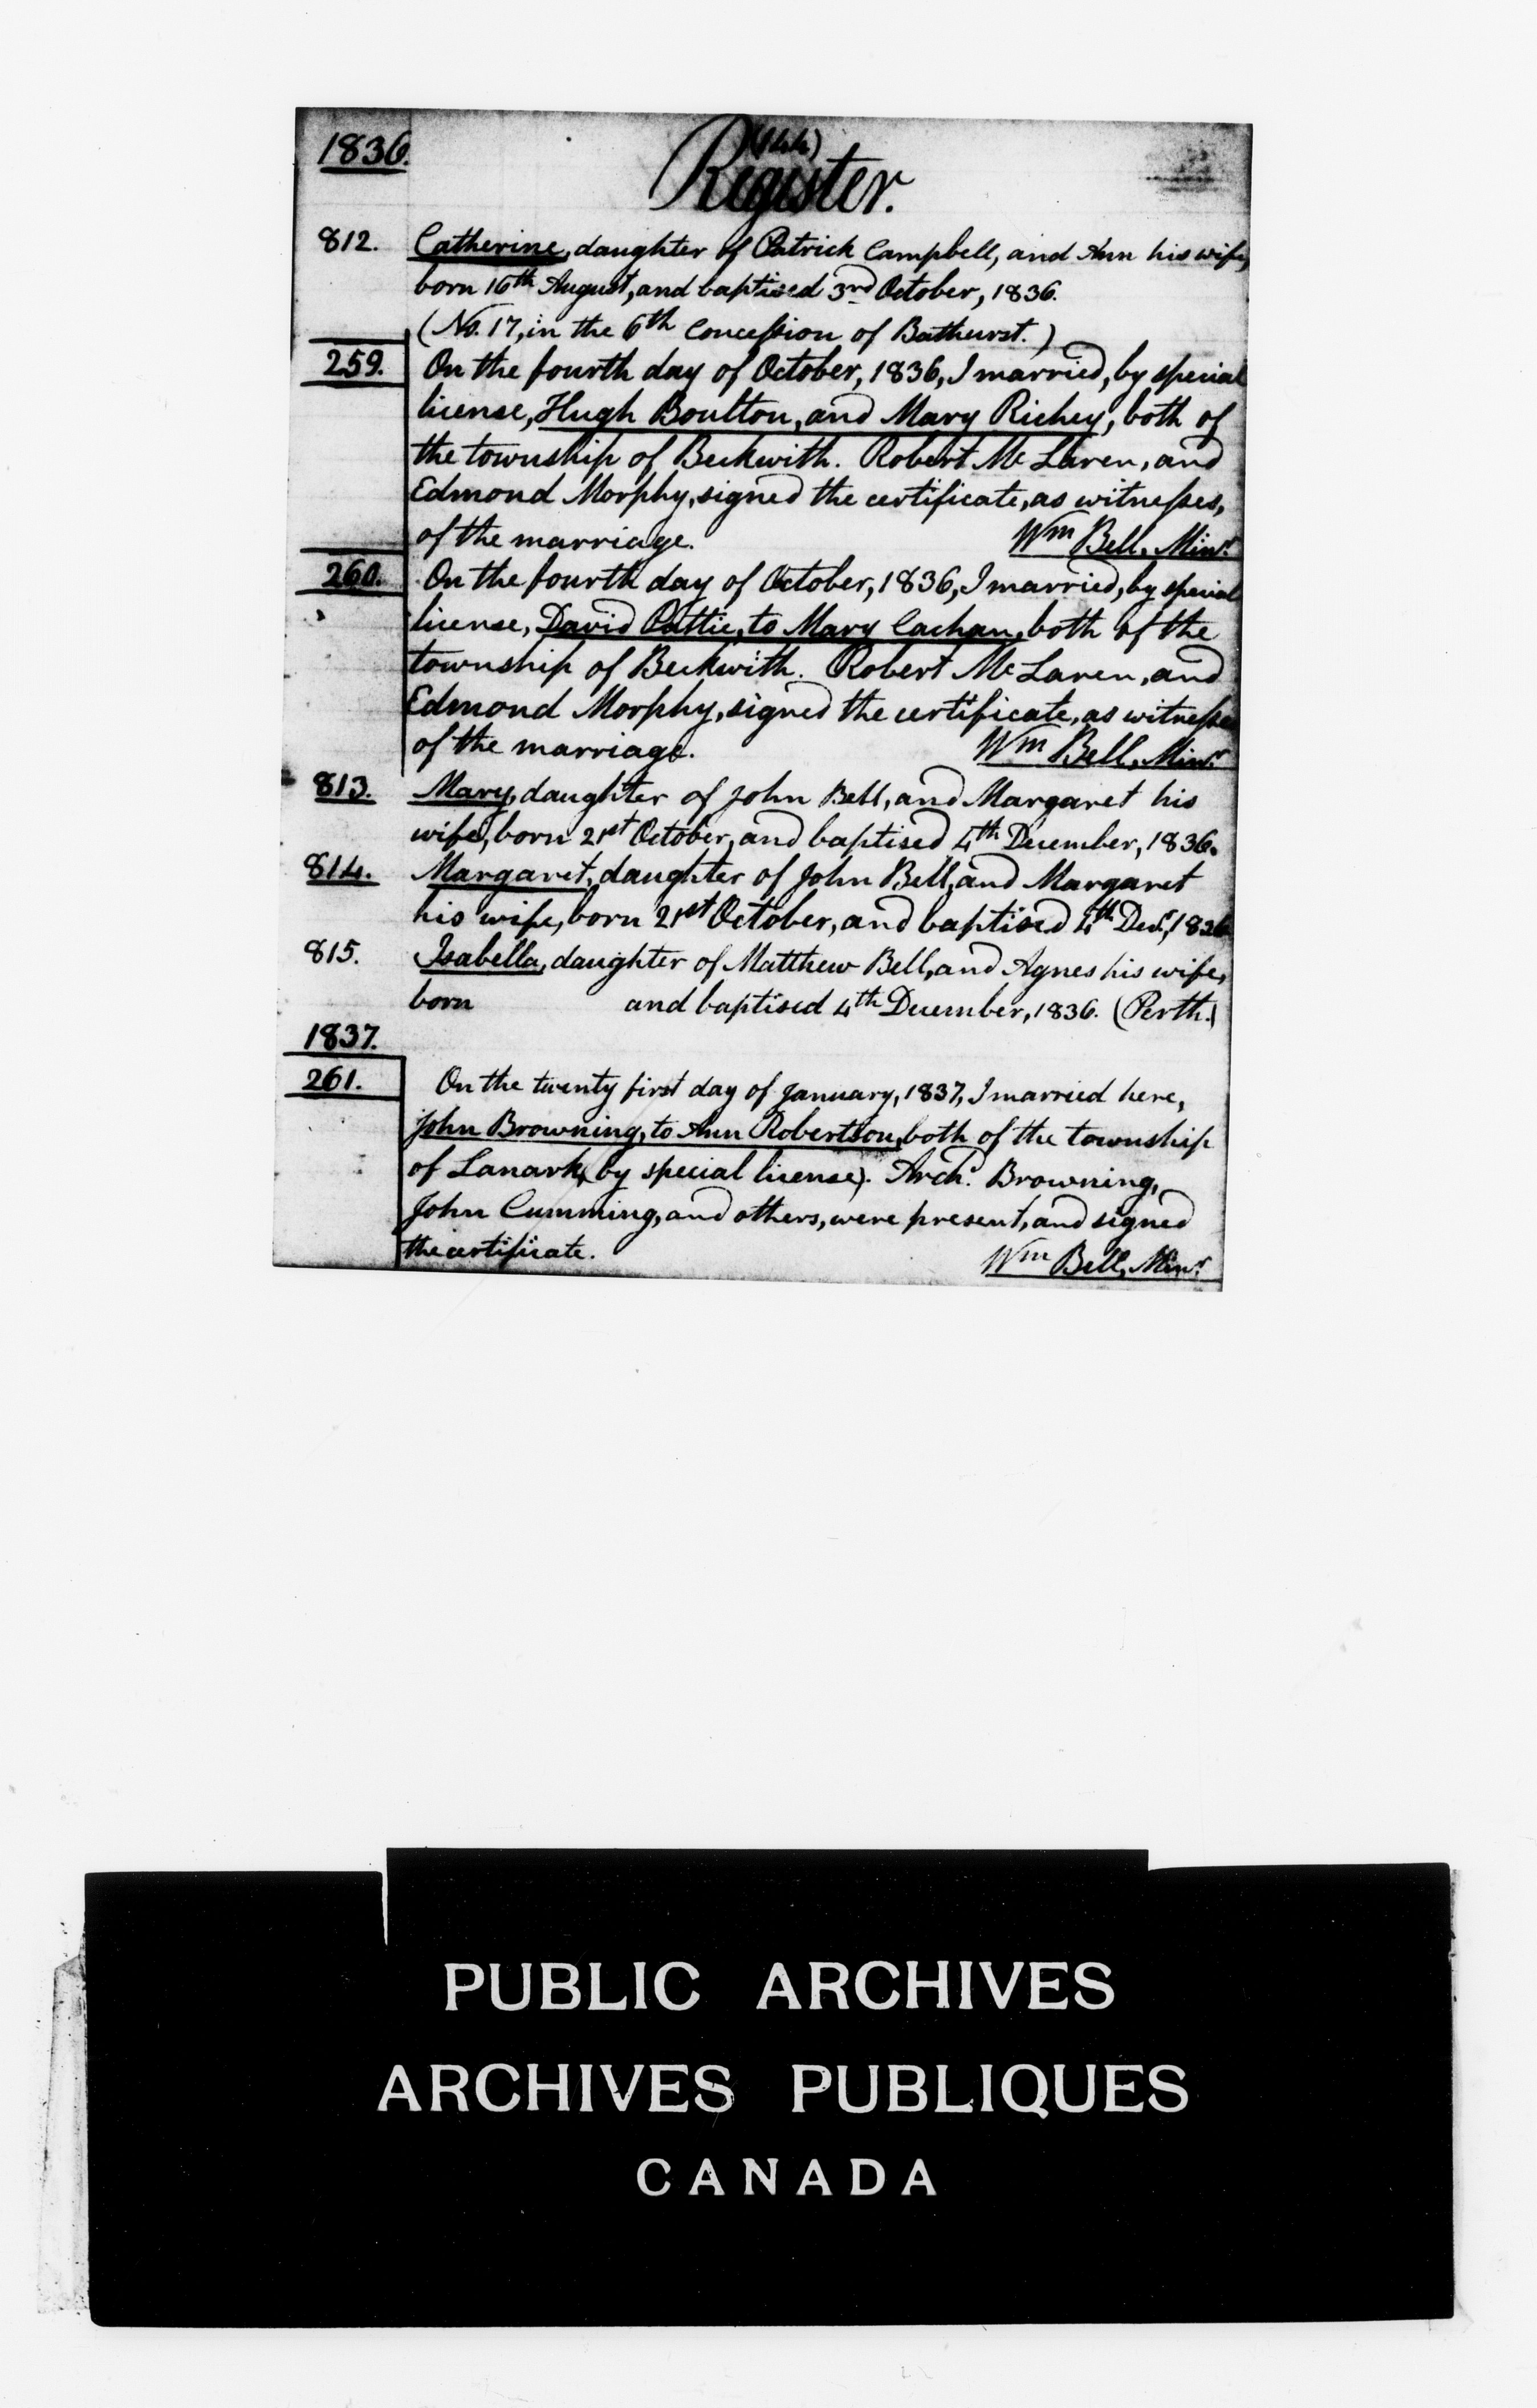 1836.
(144)
Register.
812. Catherine, daughter of Patrick Campbell, and Ann his wife,
born 16th August, and baptised 3rd October, 1836.
(No. 17, in the 6th Concession of Bathurst.)
259. On the fourth day of October, 1836, I married, by special
license, Hugh Boulton, and Mary Richey, both of
the township of Beckwith. Robert Mc Laren, and
Edmond Morphy, signed the certificate, as witnesses,
of the marriage. Wm Bell, Minr.
260. On the fourth day of October, 1836, I married, by special
license, David Pattie, to Mary Cachan, both of the
township of Beckwith. Robert Mc Laren, and
Edmond Morphy, signed the certificate, as witnesses
of the marriage. Wm Bell, Minr.
813. Mary, daughter of John Bell, and Margaret his
wife, born 21st October, and baptised 4th December, 1836.
814. Margaret, daughter of John Bell, and Margaret
his wife, born 21st October, and baptised 4th Decr, 1836
815. Isabella, daughter of Matthew Bell, and Agnes his wife,
born and baptised 4th December, 1836. (Perth.)
1837.
261. On the twenty first day of January, 1837, I married here,
John Browning, to Ann Robertson, both of the township
of Lanark (by special license). Archd. Browning,
John Cumming, and others, were present, and signed
the certificate. Wm Bell, Minr.
PUBLIC ARCHIVES
ARCHIVES PUBLIQUES
CANADA